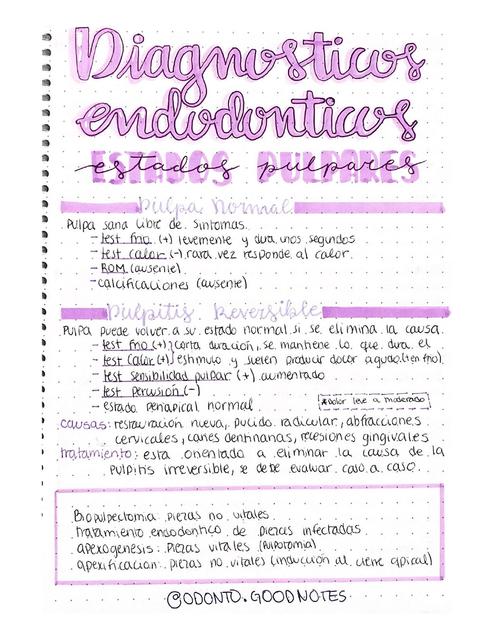 Diagnosticos
endodonticos
estados pulpares
Pulpa Normal
Pulpa sana libre de sintomas
- test frio (+) levemente y dura unos segundos
- test calor (-) rara vez responde al calor
- ROM (ausente)
- calcificaciones (ausente)
Pulpitis Reversible
Pulpa puede volver a su estado normal si se elimina la causa
- test frio (+) corta duración, se mantiene lo que dura el
- test calor (+) estimulo y suelen producir dolor agudo (ten frio)
- test sensibilidad pulpar (+) aumentado
- test percusión (-)
- estado periapical normal
*dolor leve a moderado
causas: restauración nueva, pulido radicular, abfracciones
cervicales, caries dentinarias, recesiones gingivales
tratamiento: esta orientado a eliminar la causa de la
pulpitis irreversible, se debe evaluar caso a caso.
Biopulpectomia piezas no vitales
Tratamiento endodontico de piezas infectadas
apexogenesis: piezas vitales (pulpotomia)
apexificacion: piezas no vitales (inducción al cierre apical)
@ODONTO.GOODNOTES